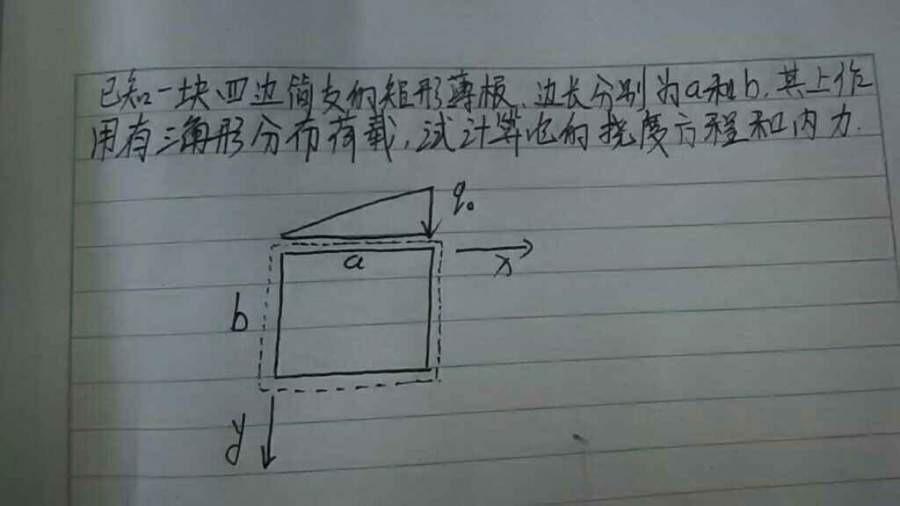 已知一块四边简支的矩形薄板、边长分别为a和b,其上作
用有三角形分布荷载,试计算它的挠度方程和内力.
q₀
a
x
b
y